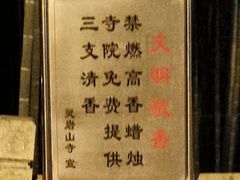 文明敬香
禁燃高香蜡烛
寺院免费提供
三支清香
灵岩山寺 宣